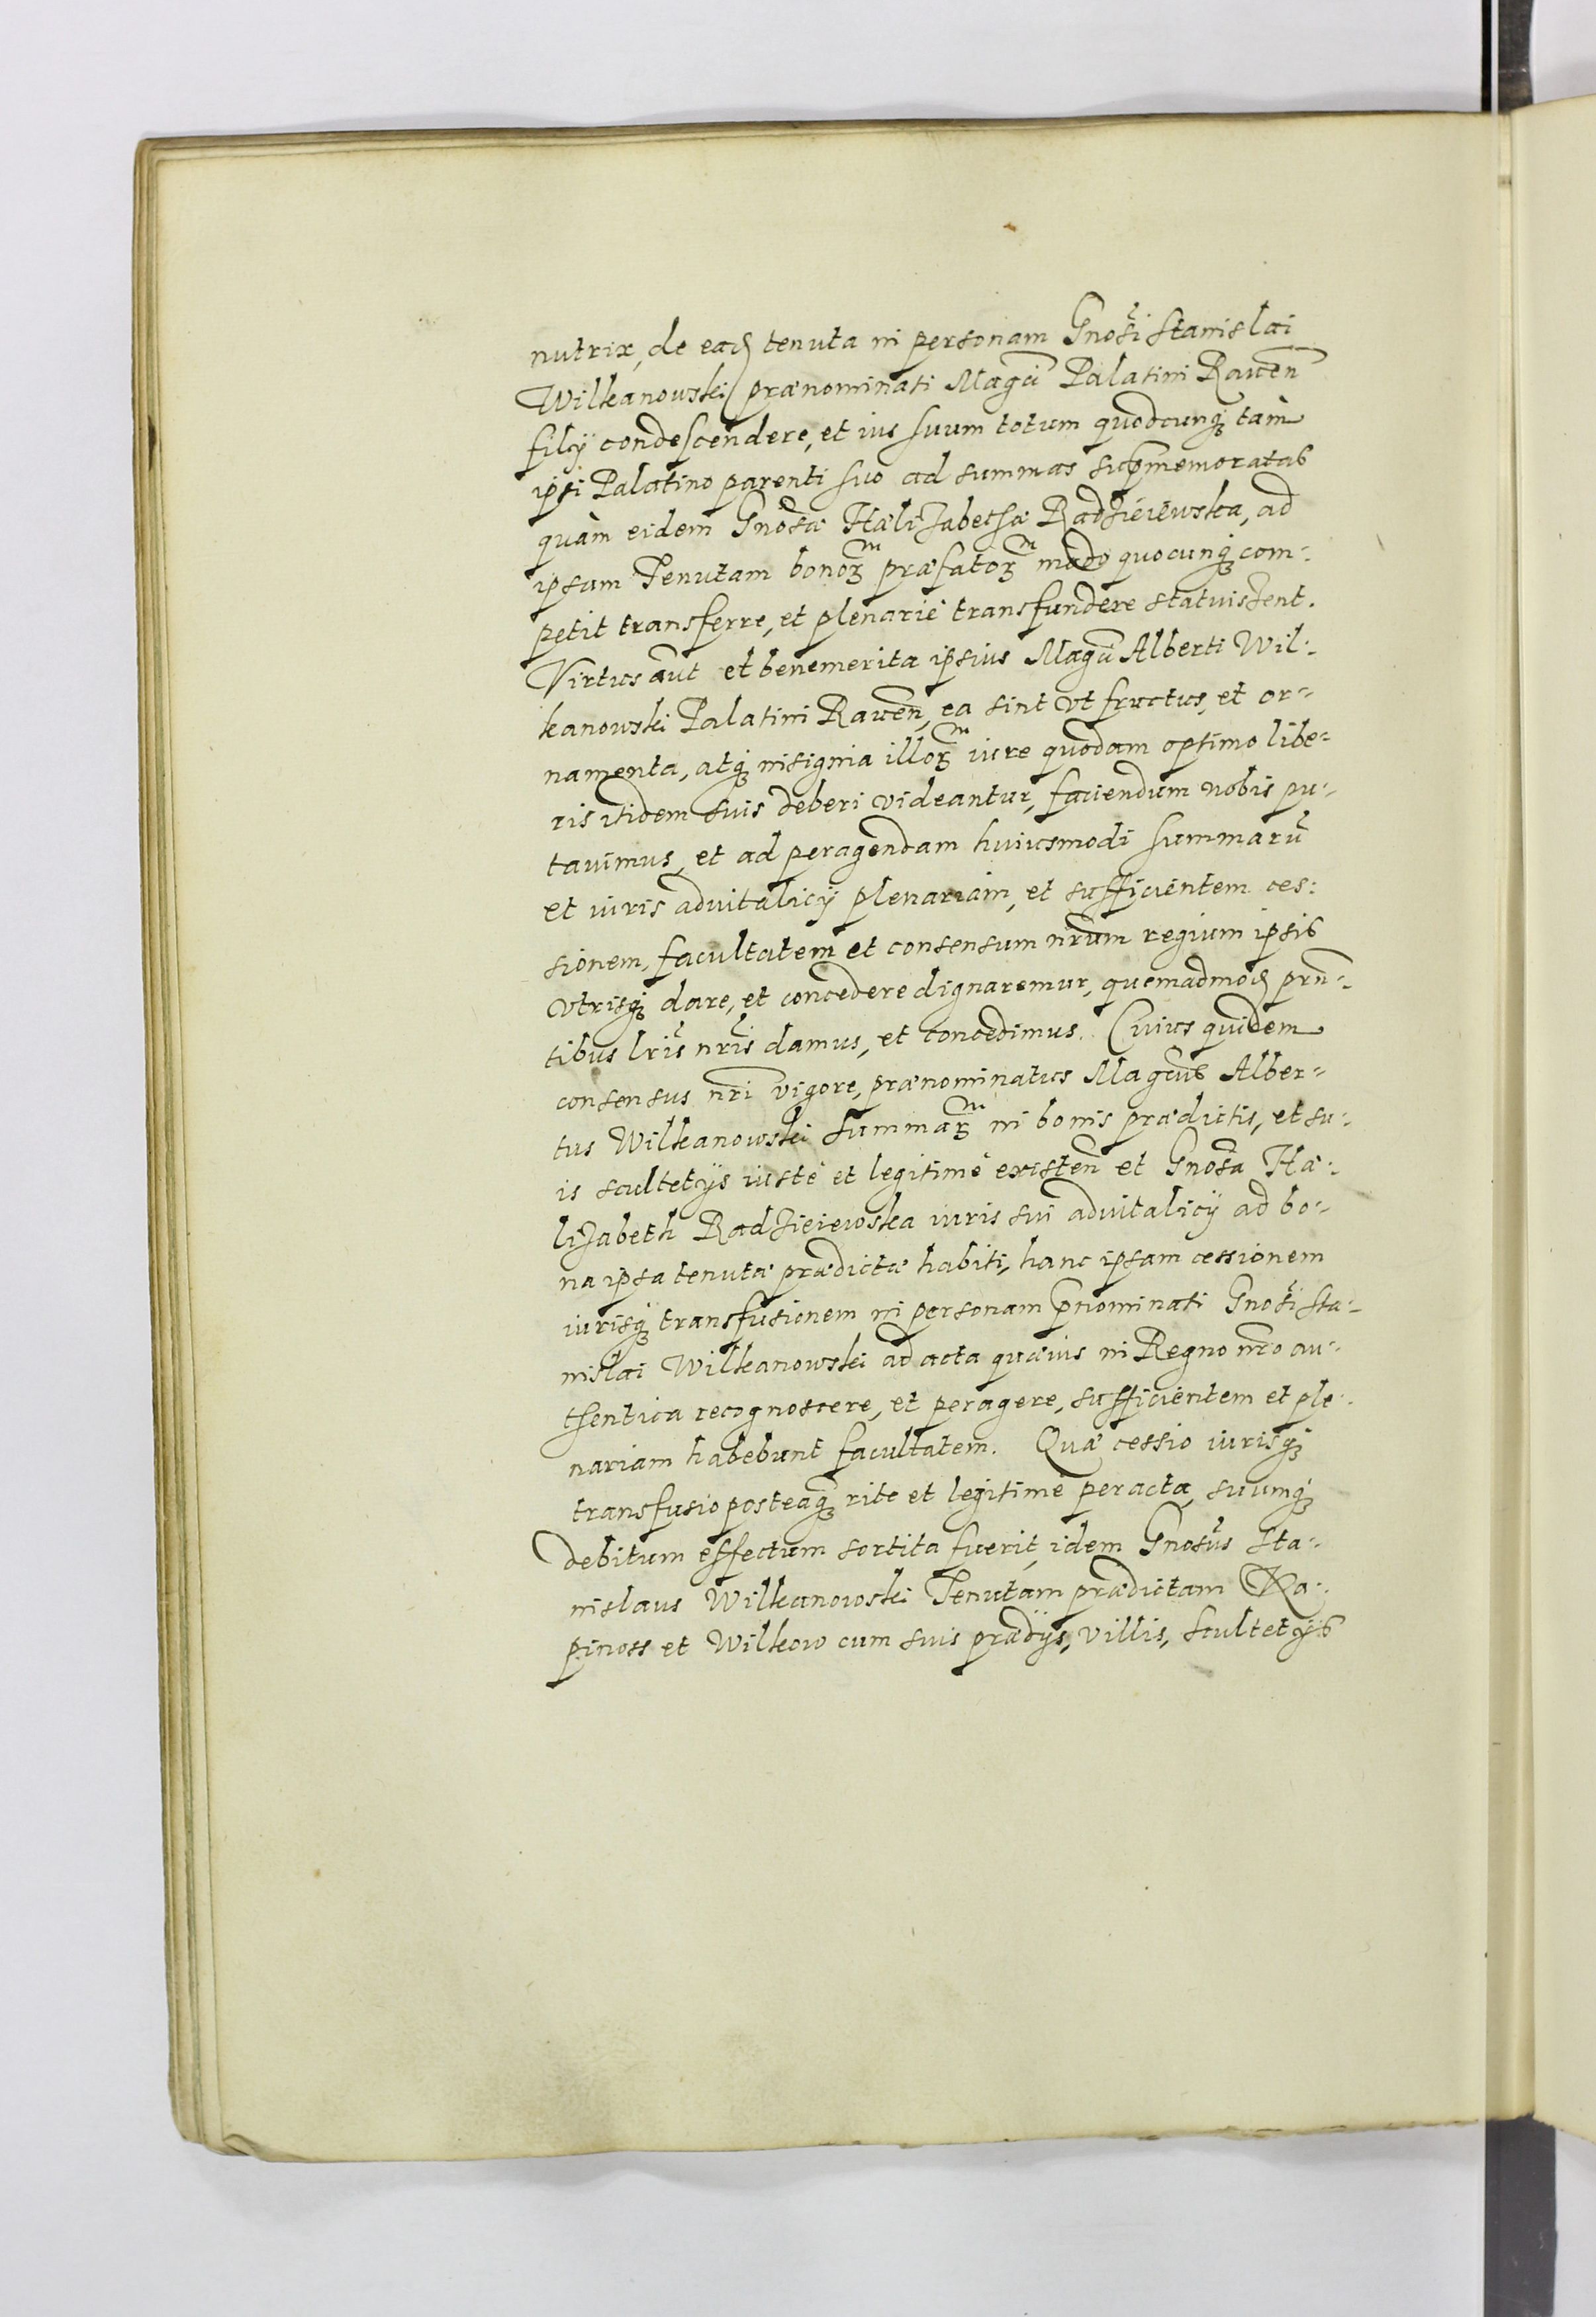 nutrix, de eadẽ tenuta in personam Gnosi Stanislai
Wilkanowski prænominati Magci Palatini Raven̄
filÿ condescendere, et ius suum totum quodcunq̃ tam
ipsi Palatino parenti suo ad summas sup̃memoratas
quàm eidem Gnosæ Hælizabethæ Radzieiewska, ad
ipsam Tenutam bonorm præfatorm modo quocunq̃ com-
petit transferre, et plenariè transfundere statuissent.
Virtus aũt et benemerita ipsius Magci Alberti Wil-
kanowski Palatini Raven̄, ea sint vt fructus, et or-
namenta, atq̃ insignia illorm iure quodam optimo libe-
ris itidem suis deberi videantur, faciendum nobis pu-
tavimus, et ad peragendam huiusmodi summarũ
et iuris aduitalicÿ plenariam, et sufficientem ces-
sionem, facultatem et consensum nr̃um regium ipsis
vtrisq̃ dare, et concedere dignaremur, quemadmodẽ prñ-
tibus lr̃is nr̃is damus, et concedimus. Cuius quidem
consensus nr̃i vigore, prænominatus Magcus Alber-
tus Wilkanowski summarm in bonis prædictis, et su-
is scultetÿs iustè et legitimè existen̄ et Gnosa Hæ-
lizabeth Radzieiewska iuris sui aduitalicÿ ad bo-
na ipsa tenutæ prædictæ habiti, hanc ipsam cessionem
iurisq̃ transfusionem in personam p̃nominati Gnosi Sta-
nislai Wilkanowski ad acta quævis in Regno nr̃o au-
thentica recognoscere, et peragere, sufficientem et ple-
nariam habebunt facultatem. Quæ cessio iurisq̃
transfusio posteaq̃ rite et legitimè peracta, suumq̃
debitum effectum sortita fuerit, idem Gnosus Sta-
nislaus Wilkanowski Tenutam prædictam Ka-
pinoss et Wilkow cum suis prædÿs, villis, scultetÿs